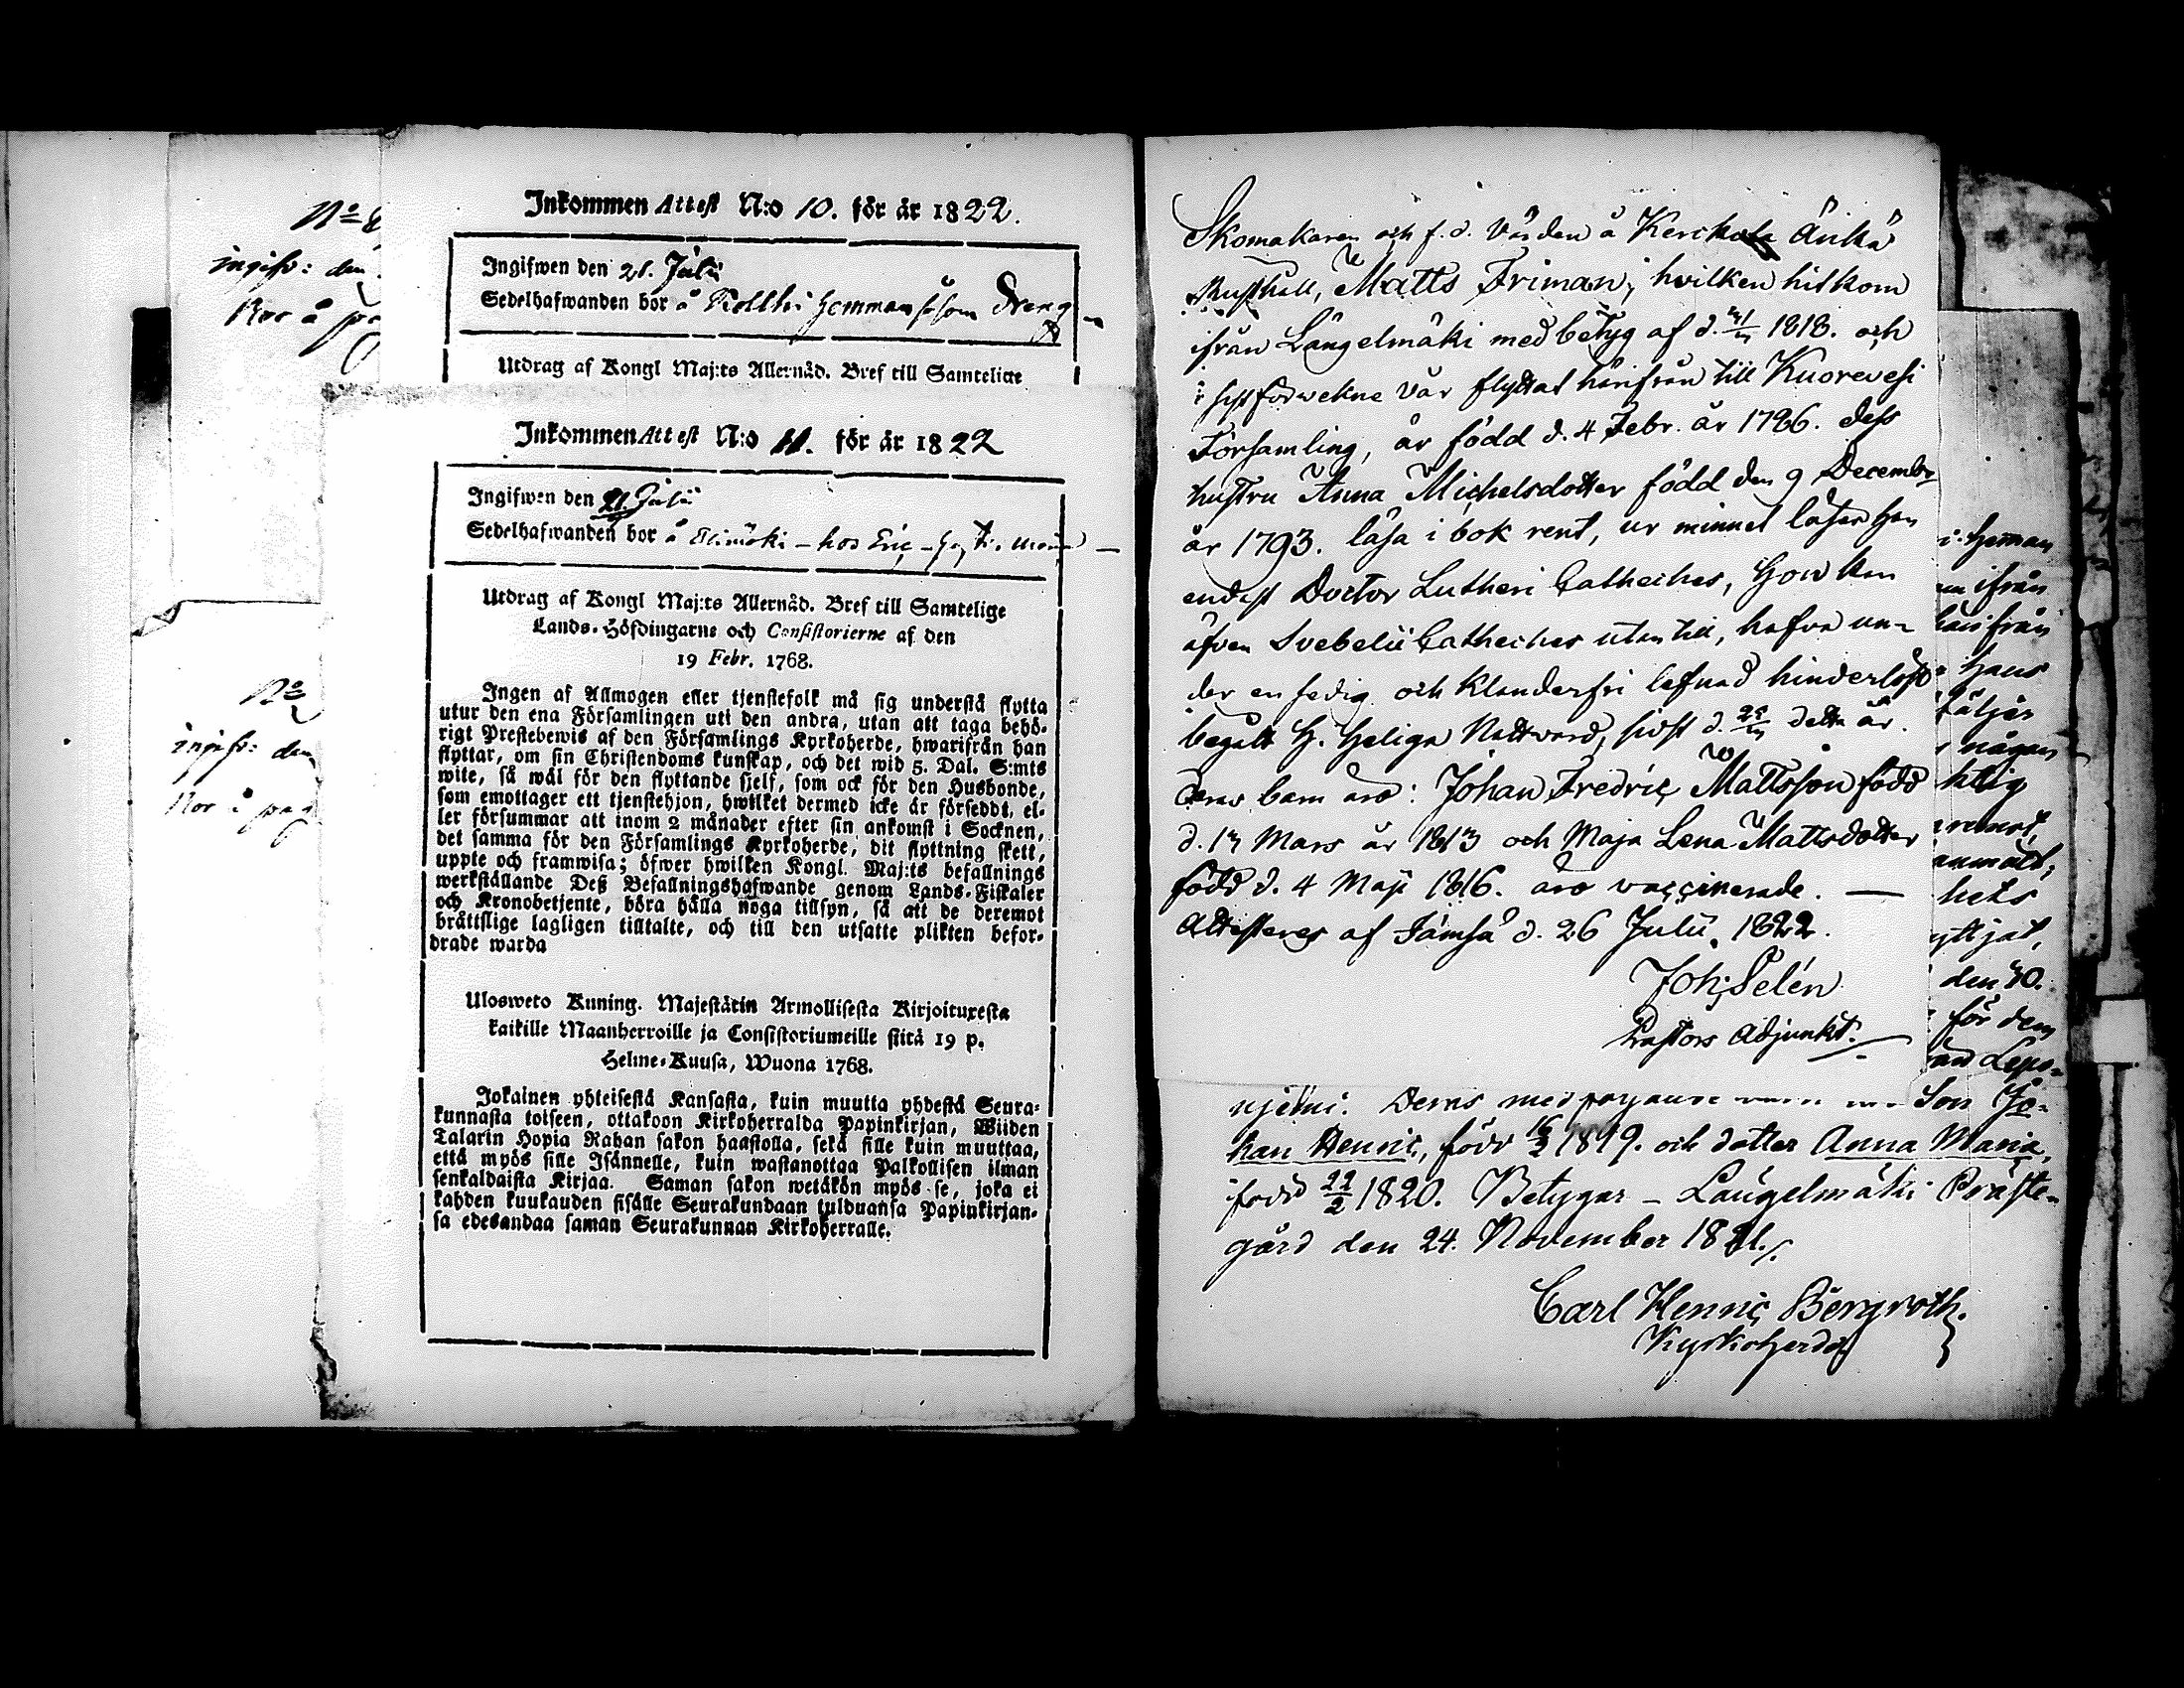 No
ingifv: den
Bor å pag
No
ingifv: den
Bor å pag
Inkommen Attest N:o 10. för år 1822.
Ingifwen den 21. Julii
Sedelhafwanden bor å hemman såsom Dreng
Utdrag af Kongl Maj:ts Allernåd. Bref till Samtelige
Inkommen Attest N:o 11. för år 1822
Ingifwen den 21. Julii
Sedelhafwanden bor å – hos Eric –
Utdrag af Kongl Maj:ts Allernåd. Bref till Samtelige
Lands-Höfdingarne och Consistorierne af den
19 Febr. 1768.
Ingen af Allmogen eller tjenstefolk må sig understå flytta
utur den ena Församlingen uti den andra, utan att taga behö-
rigt Prestebewis af den Församlings Kyrkoherde, hwarifrån han
flyttar, om sin Christendoms kunskap, och det wid 5. Dal. S:mts
wite, så wäl för den flyttande sjelf, som ock för den Husbonde,
som emottager ett tjenstehjon, hwilket dermed icke är försedt, el-
ler försummar att inom 2 månader efter sin ankomst i Socknen,
det samma för den Församlings Kyrkoherde, dit flyttning skett,
uppte och framwisa; öfwer hwilken Kongl. Maj:ts befallnings
werkställande Deß Befallningshafwande genom Lands-Fiskaler
och Kronobetjente, böra hålla noga tillsyn, så att de deremot
bråttslige lagligen tilltalte, och till den utsatte plikten befor-
drade warda
Ulosweto Kuning. Majestätin Armollisesta Kirjoituxesta
kaikille Maanherroille ja Consistoriumeille siitä 19 p.
Helme-Kuusa, Wuona 1768.
Jokainen yhteisestä Kansasta, kuin muutta yhdestä Seura-
kunnasta toiseen, ottakoon Kirkoherralda Papinkirjan, Wiiden
Talarin Hopia Rahan sakon haastolla, sekä sille kuin muuttaa,
että myös sille Isännelle, kuin wastanottaa Palkollisen ilman
senkaldaista Kirjaa. Saman sakon wetäkön myös se, joka ei
kahden kuukauden sisälle Seurakundaan tulduansa Papinkirjan-
sa edesandaa saman Seurakunnan Kirkoherralle.
Skomakaren och f.d. Värden å Änkä
Rusthåll, Matts Friman, hvilken hitkom
ifrån Längelmäki med betyg af d. 1818. och
var flyttat härifrån till Kuorevesi
Församling, är född d. 4 Febr. år 1786. dess
hustru Anna Michelsdotter född den 9 Decembr
år 1793. läsa i bok rent, ur minnet läser han
endast Doctor Lutheri Catheches, hon kan
äfven Svebelii Catheches utan till, hafva un-
der en sedig och klanderfri lefnad hinderlöst
begått H. Heliga Nattvard, sidst d. detta år.
Deras barn äro: Johan Fredric Mattsson född
d. 13 Mars år 1813 och Maja Lena Mattsdotter
född d. 4 Maji 1816. äro vaccinerade. —
Attesteres af Jämsä d. 26 Julii 1822.
Joh: Selén
Pastors Adjunkt.
hemman
ifrån
härifrån
hans
någon
den 30.
för dem
Deras Son Jo-
han Henric, född 16/2 1819. och dotter Anna Maria,
född 22/2 1820. Betygar – Längelmäki Präste-
gård den 24. November 1821.
Carl Henric Bergroth.
Kyrkoherde